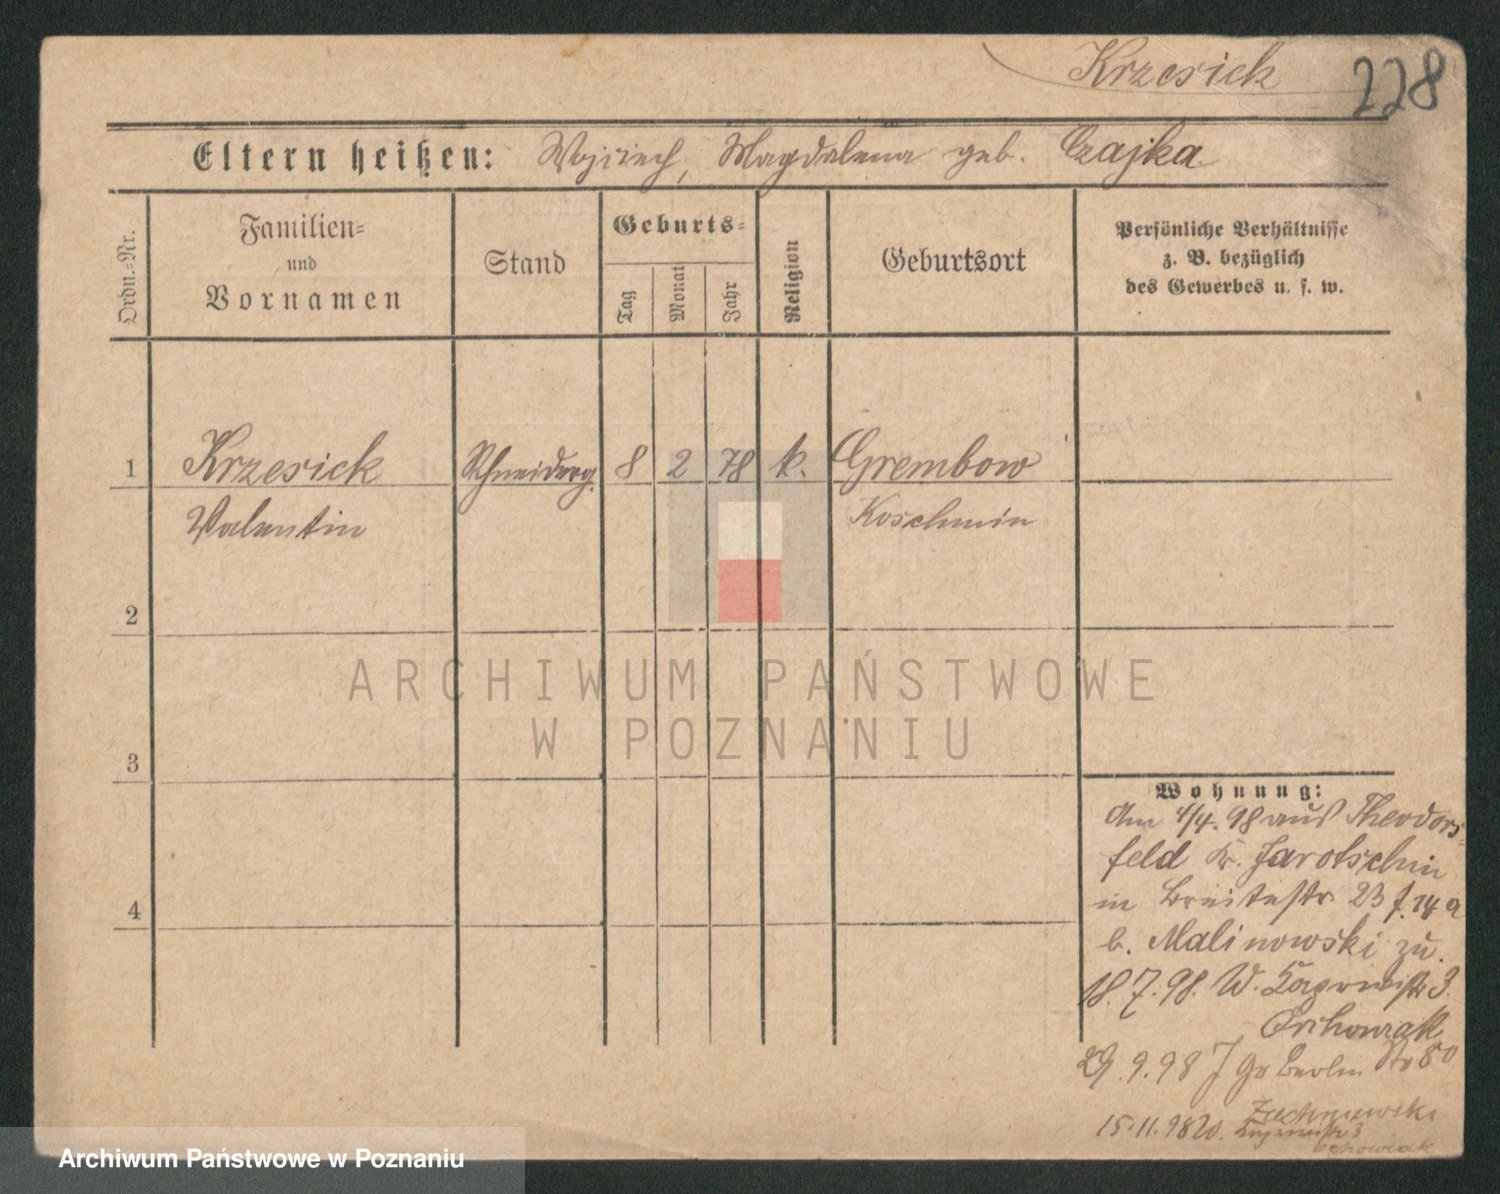 Krzesick
228
Eltern heißen: Wojciech, Magdalena geb. Czajka
Ordn.-Nr.
Familien-
und
Vornamen
Stand
Geburts-
Tag
Monat
Jahr
Religion
Geburtsort
Persönliche Verhältnisse
z. B. bezüglich
des Gewerbes u. s. w.
1 Krzesick Schneiderg. 8 2 78 k. Grembow
Valentin Koschmin
2
3
4
ARCHIWUM PAŃSTWOWE
W POZNANIU
Wohnung:
Am 4/4. 98 aus Theodors-
feld Kr. Jarotschin
in Breitestr. 23
b. Malinowski zu.
18.7.98. W. 3.
29.9.98 Gr Berlin Str 80
15.11.98
Archiwum Państwowe w Poznaniu